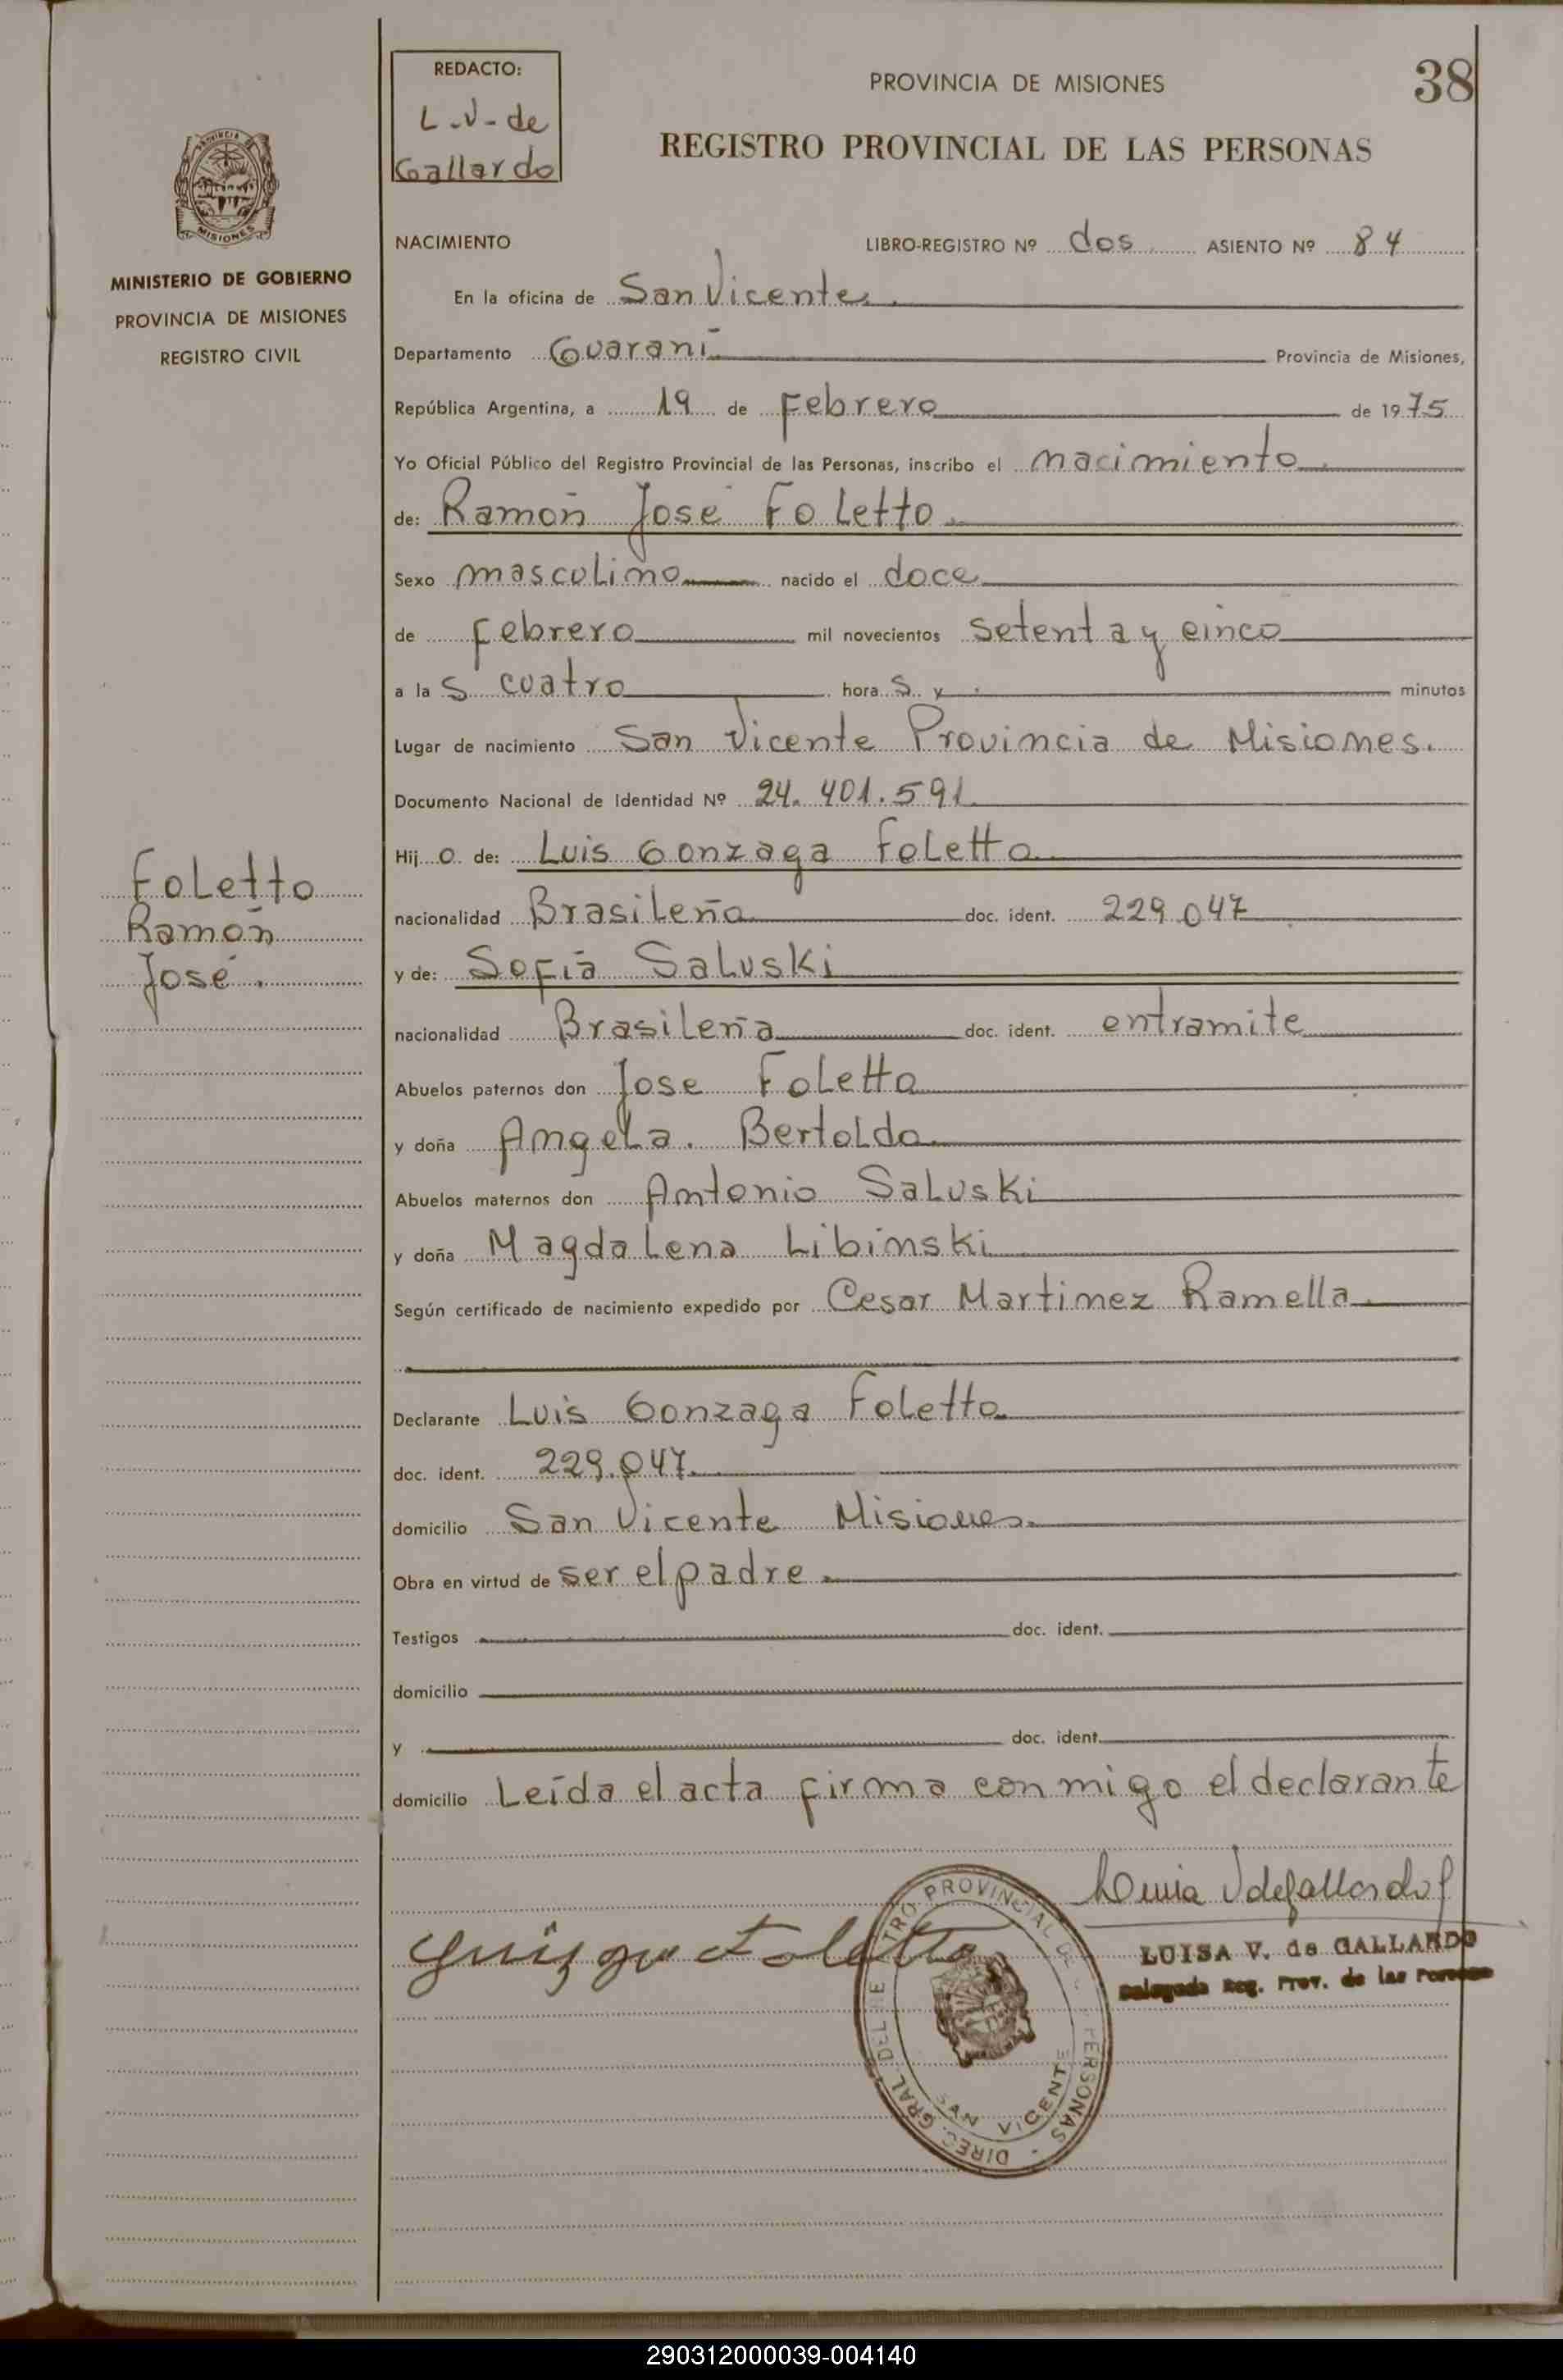 REDACTO:
L.V. de
Gallardo
PROVINCIA DE MISIONES
38
REGISTRO PROVINCIAL DE LAS PERSONAS
MISIONES
MINISTERIO DE GOBIERNO
PROVINCIA DE MISIONES
REGISTRO CIVIL
NACIMIENTO LIBRO-REGISTRO Nº dos ASIENTO Nº 84
En la oficina de San Vicente.
Departamento Guaraní Provincia de Misiones,
República Argentina, a 19 de Febrero de 1975
Yo Oficial Público del Registro Provincial de las Personas, inscribo el nacimiento.
de: Ramón José Foletto.
Sexo masculino nacido el doce
de Febrero mil novecientos setenta y cinco
a la s cuatro hora s y minutos
Lugar de nacimiento San Vicente Provincia de Misiones.
Documento Nacional de Identidad Nº 24.401.591
Hij o de: Luis Gonzaga Foletto
nacionalidad Brasileña doc. ident. 229.047
y de: Sofía Saluski
nacionalidad Brasileña doc. ident. entramite
Foletto
Ramón
José.
Abuelos paternos don Jose Foletto
y doña Angela. Bertoldo
Abuelos maternos don Antonio Saluski
y doña Magdalena Libinski
Según certificado de nacimiento expedido por Cesar Martinez Ramella.
Declarante Luis Gonzaga Foletto
doc. ident. 229.047.
domicilio San Vicente Misiones.
Obra en virtud de ser el padre.
Testigos doc. ident.
domicilio
y doc. ident.
domicilio Leída el acta firma conmigo el declarante
Foletto
LUISA V. de GALLARDO
Delegada Reg. Prov. de las Personas
PROVINCIAL DE PERSONAS - DIREC. GRAL. DEL
SAN VICENTE
290312000039-004140